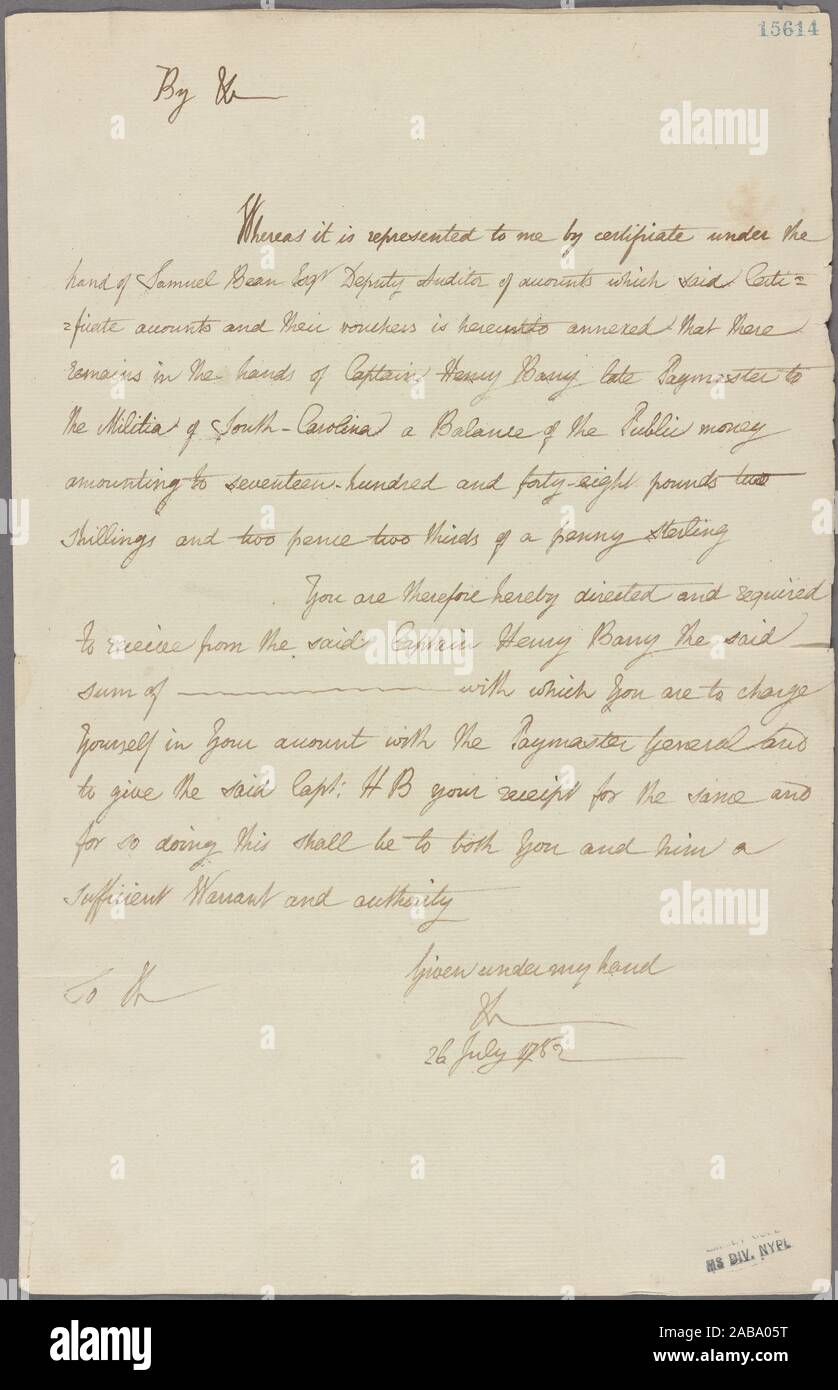 15614
By &c
Whereas it is represented to me by certificate under the
hand of Samuel Bean Esqr Deputy Auditor of accounts which said Certi=
=ficate accounts and their vouchers is hereunto annexed that there
remains in the hands of Captain Henry Barry late Paymaster to
the Militia of South-Carolina a Balance of the Public money
amounting to seventeen hundred and forty-eight pounds two
shillings and two pence two thirds of a penny sterling
You are therefore hereby directed and required
to receive from the said Captain Henry Barry the said
sum of with which You are to charge
Yourself in Your account with the Paymaster General and
to give the said Capt: H B your receipt for the same and
for so doing this shall be to both You and him a
sufficient Warrant and authority
Given under my hand
To &c
&c
26 July 1782
MS DIV. NYPL
alamy
alamy
Image ID: 2ABA05T
www.alamy.com